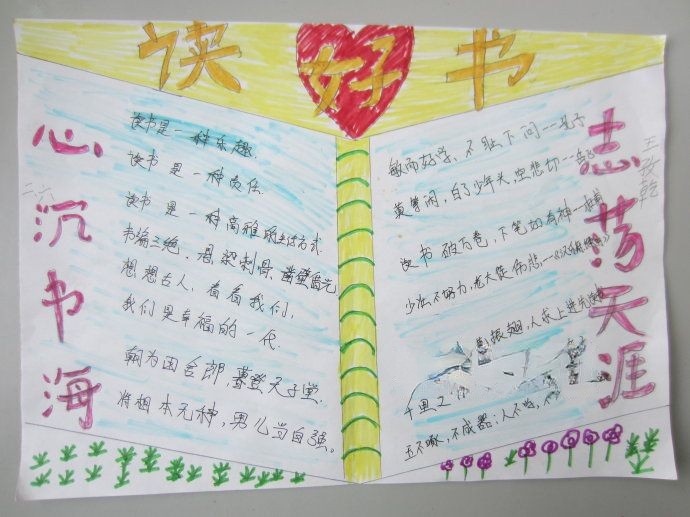 读好书
心沉书海
二六
读书是一种乐趣.
读书是一种责任.
读书是一种高雅的生活方式.
韦编三绝.悬梁刺骨.凿壁偷光
想想古人,看看我们,
我们是幸福的一代.
朝为田舍郎,暮登天子堂.
将相本无种,男儿当自强。
敏而好学、不耻下问--孔子
莫等闲,白了少年头,空悲切--岳飞
读书破万卷,下笔如有神--杜甫
少壮不努力,老大徒伤悲,--《汉乐府
振翅,人求上进先
千里之
玉不啄,不成器;人不
志荡天涯
王孜乾